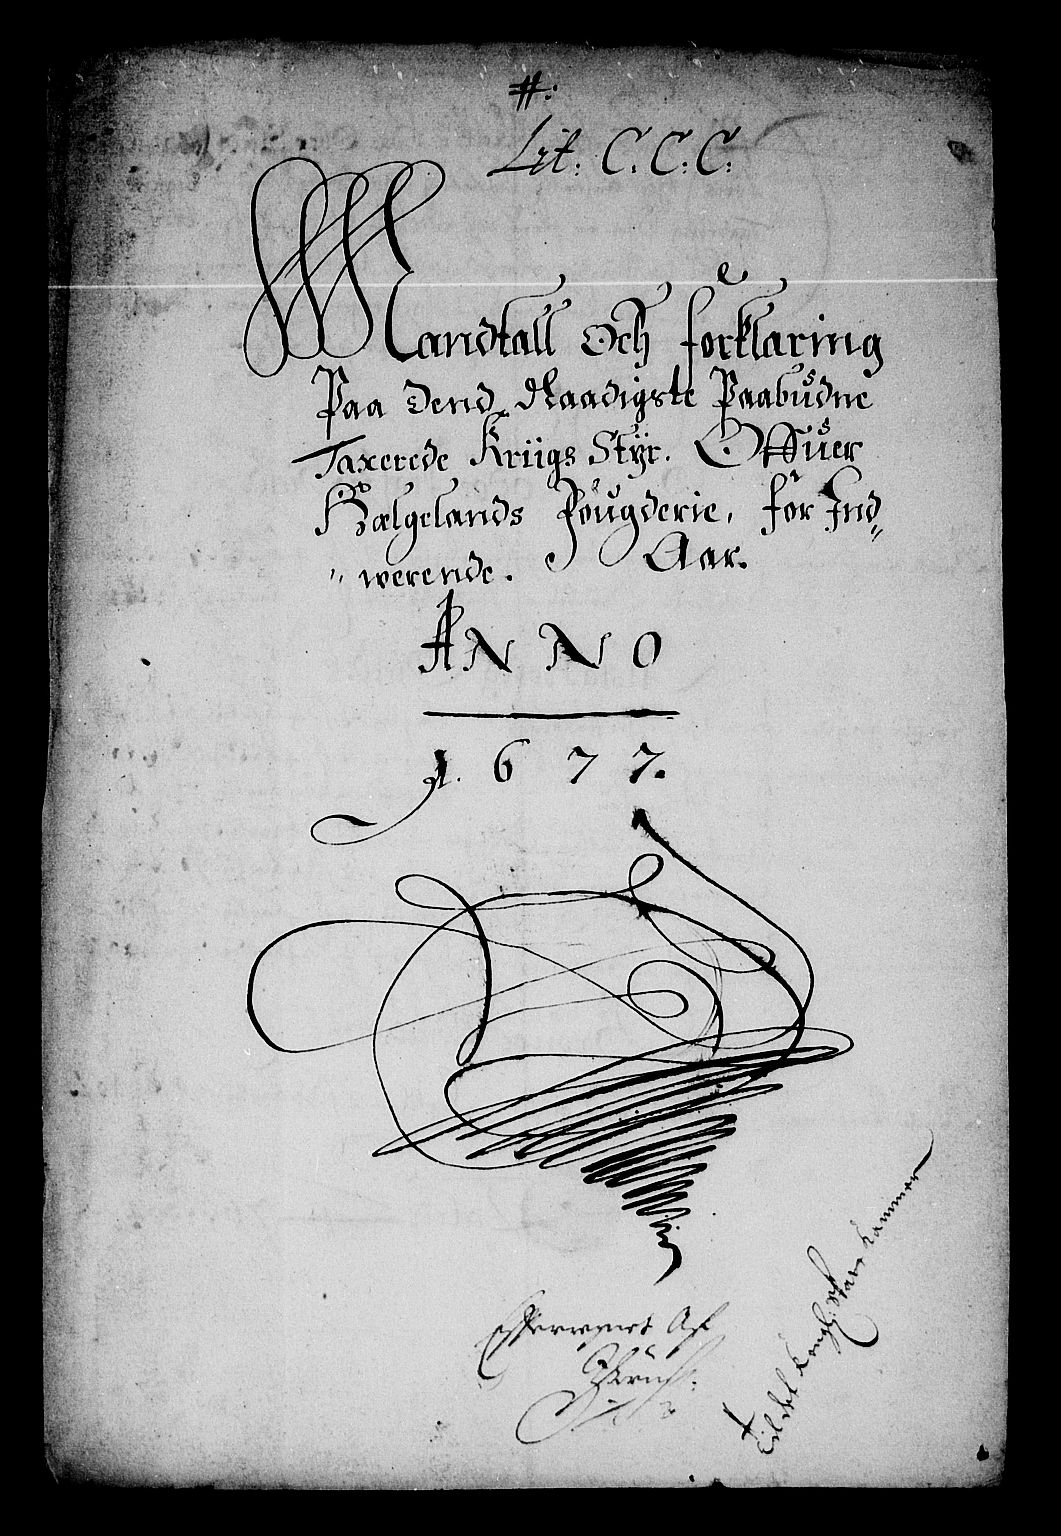 #:
Lit: C: C: C:
Mandtall Och forklaring
Paa Dend Naadigste Paabudne
Taxerede Kriigs Styr. Offuer
Helgelands Fougderie, for Ind„
„ werende. Aar.
ANNO
1677.
Efterregnet Af
Til det Kongl: Skat Kammer